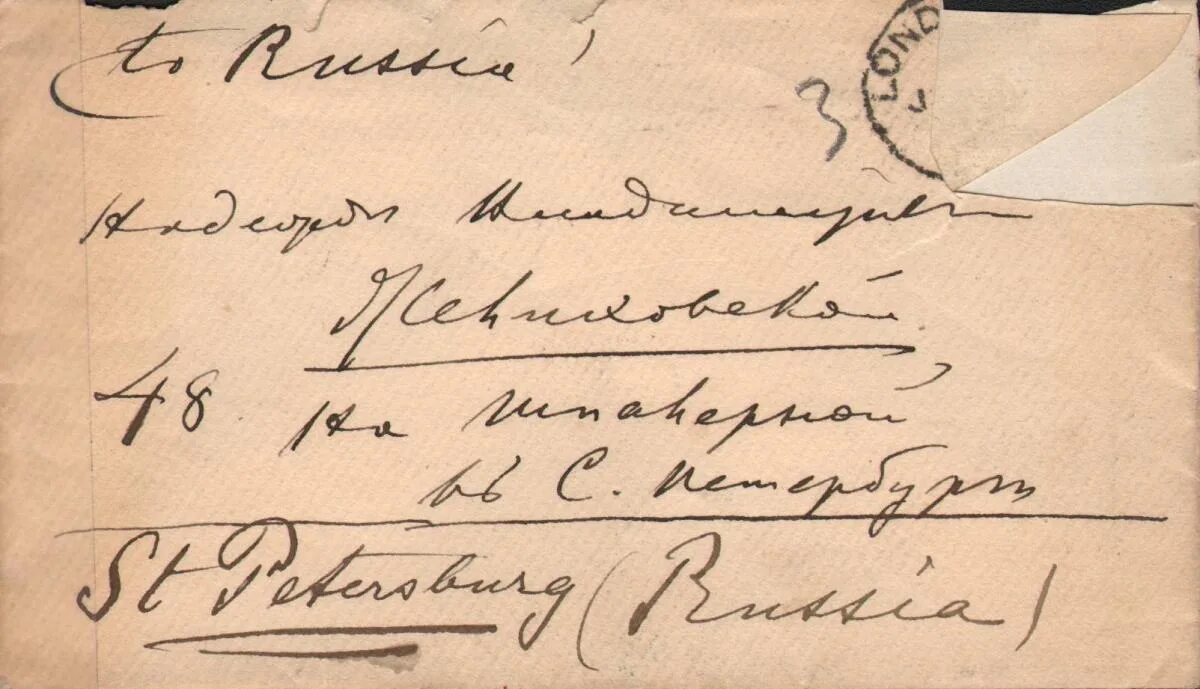 to Russia
LOND
J
3
Надеждѣ Владиміровнѣ
Желиховской
48 На Шпалерной
въ С. Петербургѣ
St Petersburg (Russia)